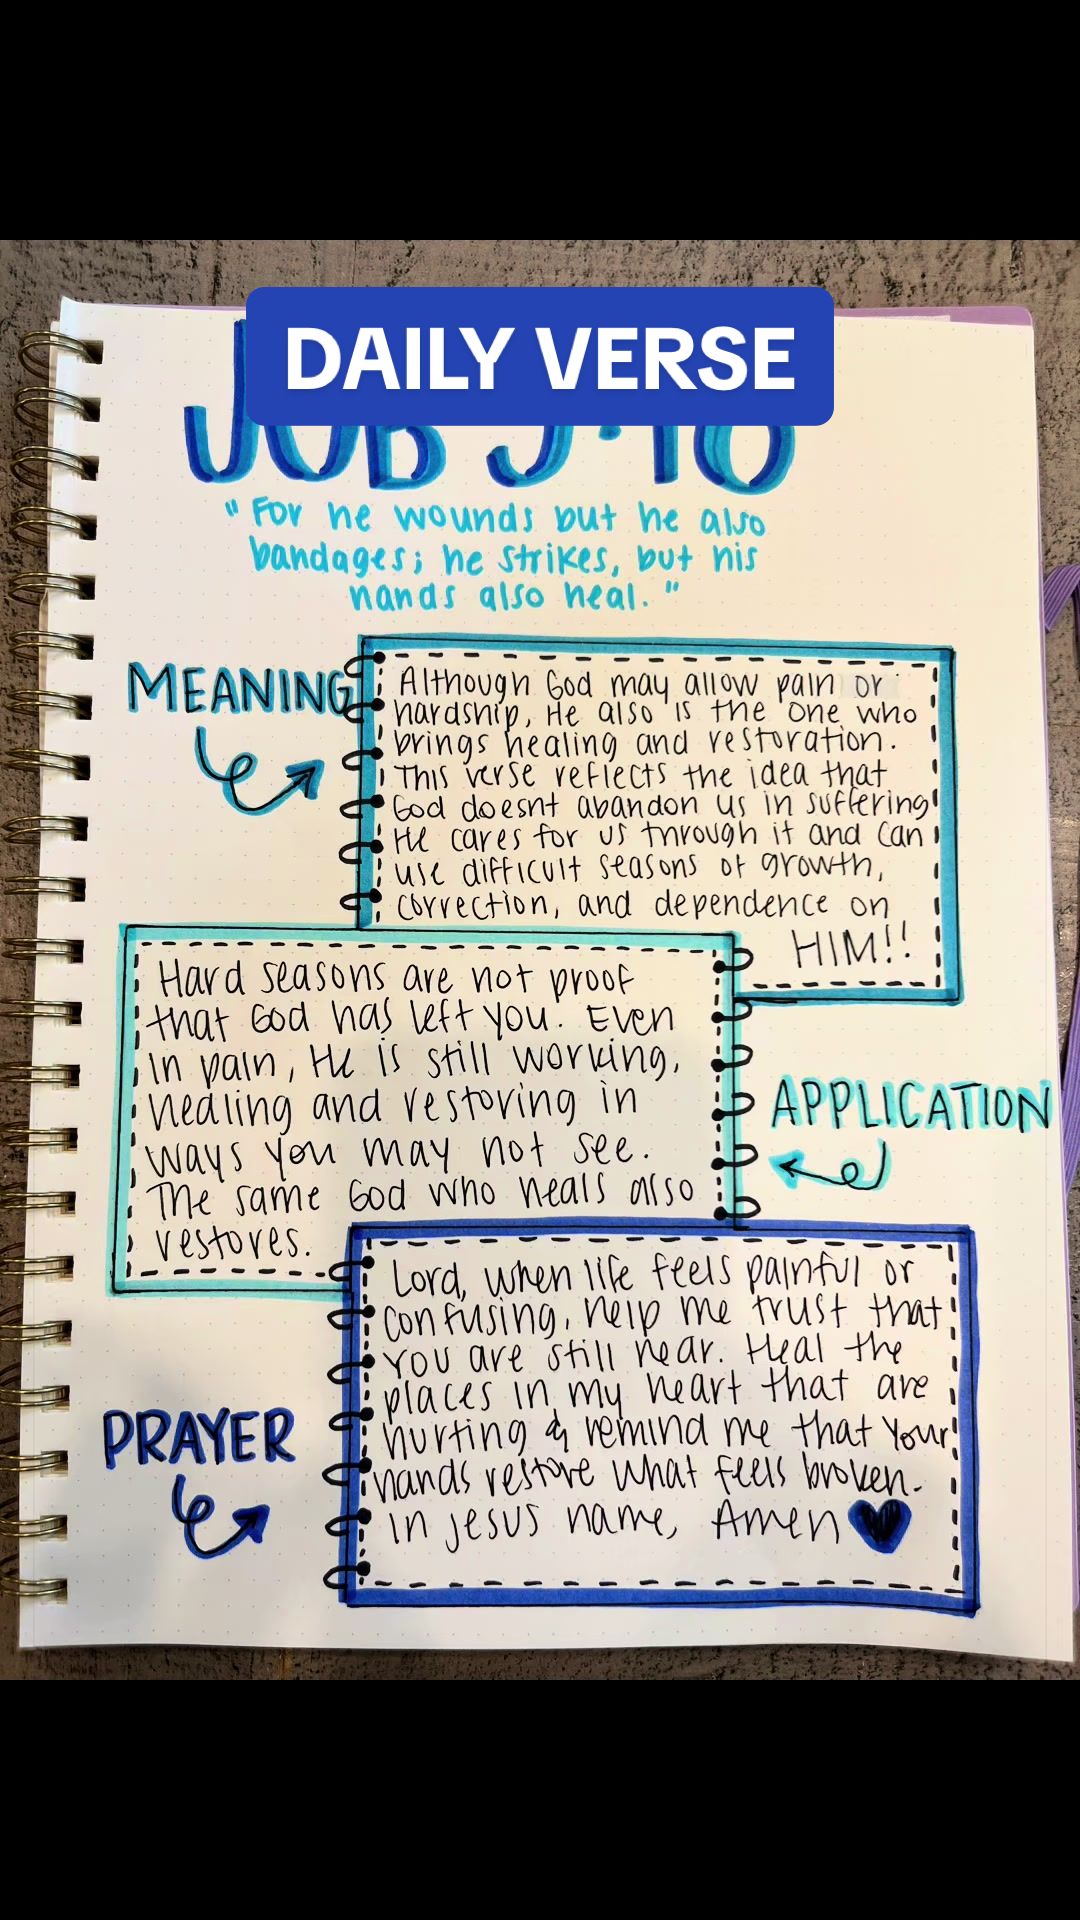 DAILY VERSE
JOB 5:18
"For he wounds but he also
bandages; he strikes, but his
hands also heal."
MEANING
Although God may allow pain or
hardship, He also is the one who
brings healing and restoration.
This verse reflects the idea that
God doesnt abandon us in suffering
He cares for us through it and can
use difficult seasons of growth,
correction, and dependence on
HIM!!
Hard seasons are not proof
that God has left you. Even
in pain, He is still working,
healing and restoring in
ways you may not see.
The same God who heals also
restores.
APPLICATION
Lord, when life feels painful or
confusing, help me trust that
you are still near. Heal the
places in my heart that are
hurting & remind me that Your
hands restore what feels broken.
in jesus name, Amen
PRAYER